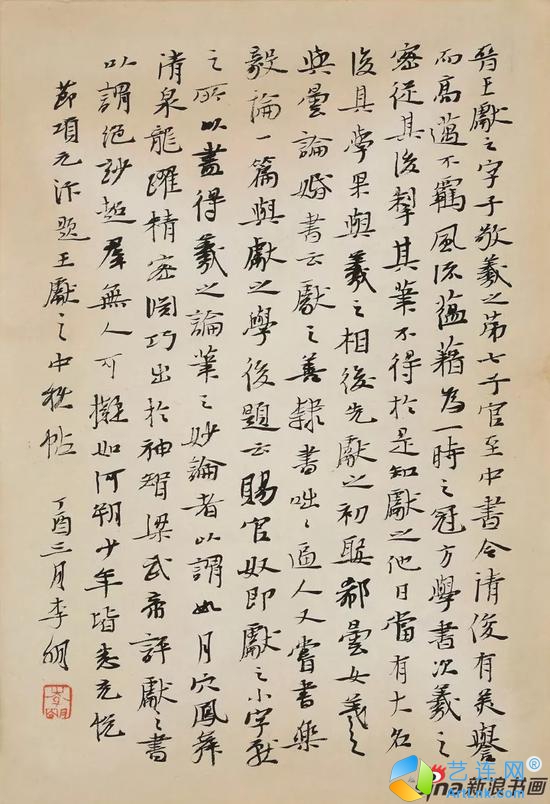 晉王獻之字子敬羲之第七子官至中書令清俊有美譽
而高邁不羈風流蘊藉為一時之冠方學書次羲之
密從其後掣其筆不得於是知獻之他日當有大名
後其學果與羲之相後先獻之初娶郗曇女羲之
與曇論婚書云獻之善隸書咄〻逼人又嘗書樂
毅論一篇與獻之學後題云賜官奴即獻之小字獻
之所以盡得羲之論筆之妙論者以謂如丹穴鳳舞
清泉龍躍精密淵巧出於神智梁武帝評獻之書
以謂絕妙超羣無人可擬如河朔少年皆悉充悅
節項元汴題王獻之中秋帖 丁酉三月李明
艺连网
新浪书画